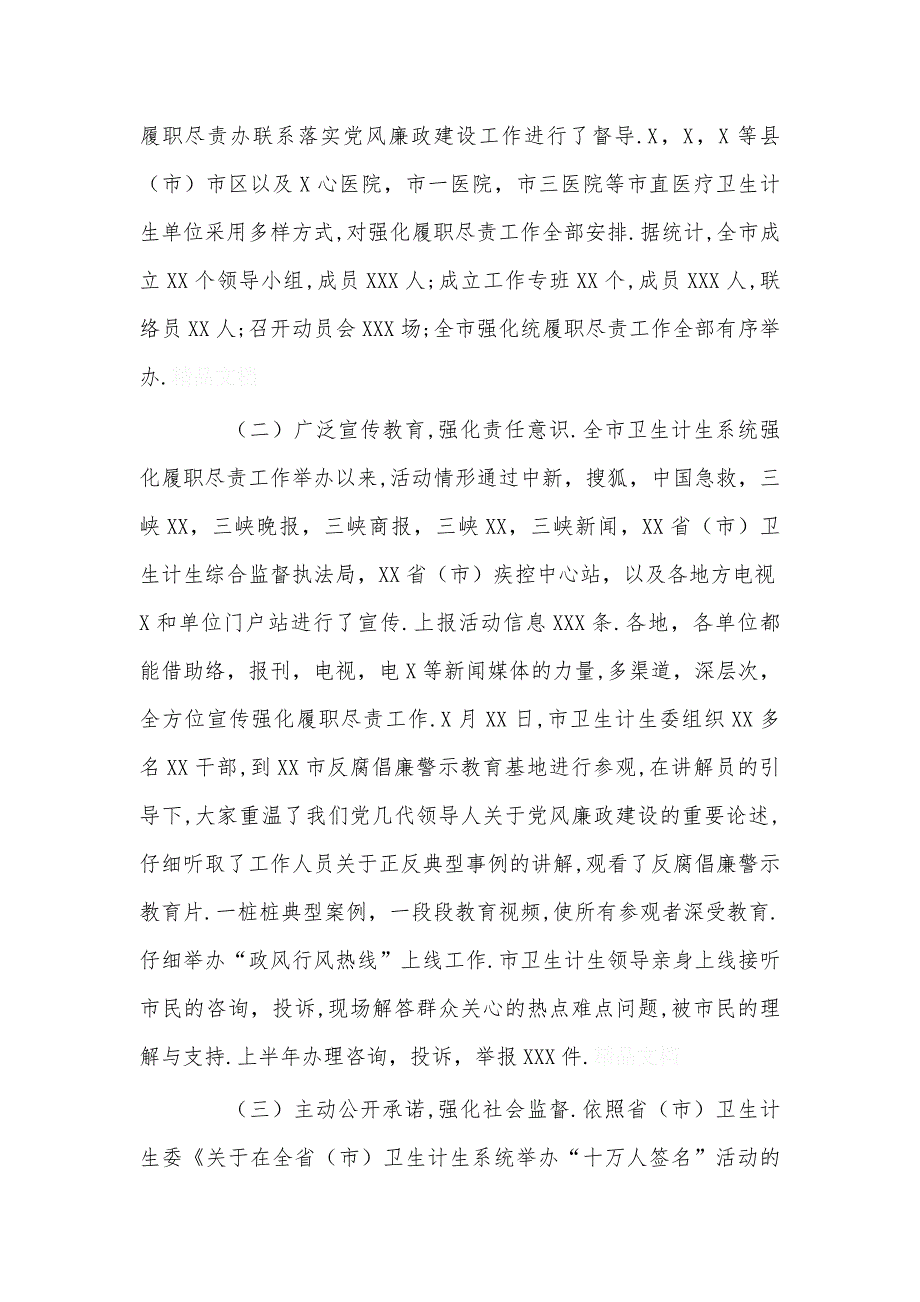 履职尽责办联系落实党风廉政建设工作进行了督导.X，X，X等县
（市）市区以及X心医院，市一医院，市三医院等市直医疗卫生计
生单位采用多样方式,对强化履职尽责工作全部安排.据统计,全市成
立XX个领导小组,成员XXX人;成立工作专班XX个,成员XXX人,联
络员XX人;召开动员会XXX场;全市强化统履职尽责工作全部有序举
办.精品文档
（二）广泛宣传教育,强化责任意识.全市卫生计生系统强
化履职尽责工作举办以来,活动情形通过中新，搜狐，中国急救，三
峡XX，三峡晚报，三峡商报，三峡XX，三峡新闻，XX省（市）卫
生计生综合监督执法局，XX省（市）疾控中心站，以及各地方电视
X和单位门户站进行了宣传.上报活动信息XXX条.各地，各单位都
能借助络，报刊，电视，电X等新闻媒体的力量,多渠道，深层次，
全方位宣传强化履职尽责工作.X月XX日,市卫生计生委组织XX多
名XX干部,到XX市反腐倡廉警示教育基地进行参观,在讲解员的引
导下,大家重温了我们党几代领导人关于党风廉政建设的重要论述,
仔细听取了工作人员关于正反典型事例的讲解,观看了反腐倡廉警示
教育片.一桩桩典型案例，一段段教育视频,使所有参观者深受教育.
仔细举办“政风行风热线”上线工作.市卫生计生领导亲身上线接听
市民的咨询，投诉,现场解答群众关心的热点难点问题,被市民的理
解与支持.上半年办理咨询，投诉，举报XXX件.精品文档
（三）主动公开承诺,强化社会监督.依照省（市）卫生计
生委《关于在全省（市）卫生计生系统举办“十万人签名”活动的